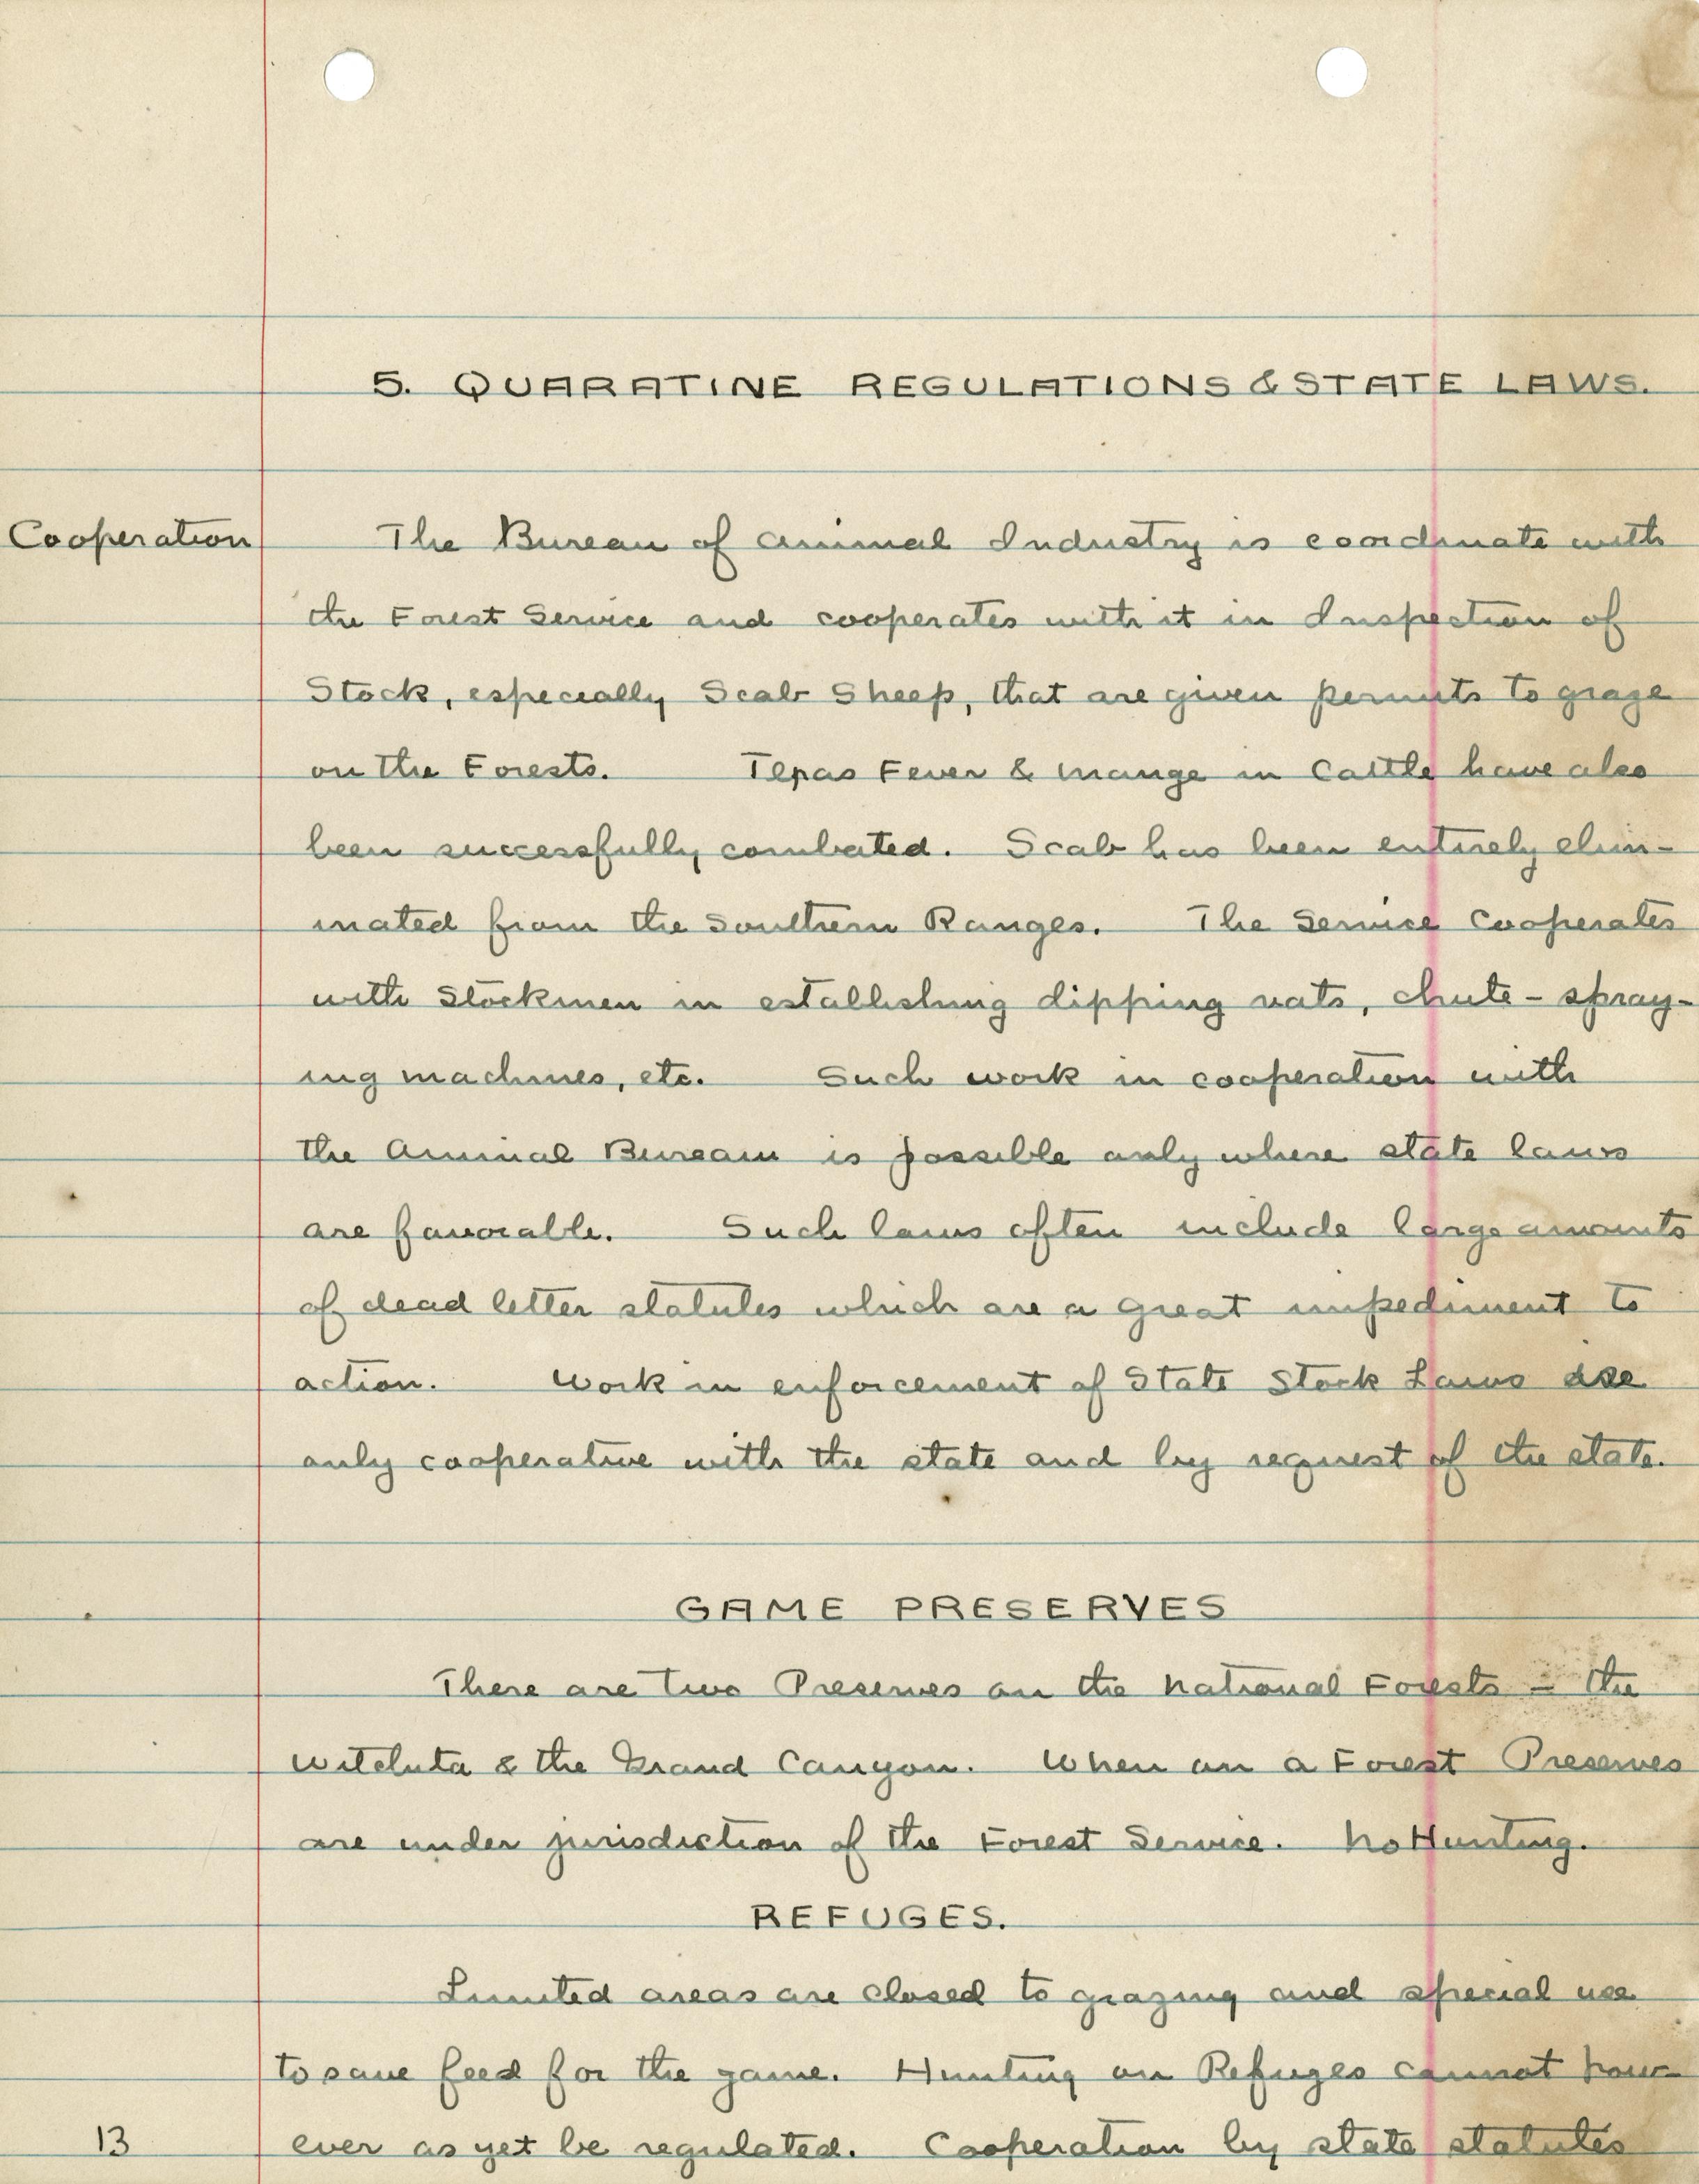 5. QUARATINE REGULATIONS & STATE LAWS.
Cooperation The Bureau of Animal Industry is coordinate with
the Forest Service and cooperates with it in Inspection of
Stock, especially Scab Sheep, that are given permits to graze
on the Forests. Texas Fever & mange in Cattle have also
been successfully combated. Scab has been entirely elim-
inated from the Southern Ranges. The Service Cooperates
with Stockmen in establishing dipping vats, chute-spray-
ing machines, etc. Such work in cooperation with
the Animal Bureau is possible only where state laws
are favorable. Such laws often include large amounts
of dead letter statutes which are a great impediment to
action. Work in enforcement of State Stock Laws are
only cooperative with the state and by request of the state.
GAME PRESERVES
There are two Preserves on the National Forests - the
Witchita & the Grand Canyon. When on a Forest Preserves
are under jurisdiction of the Forest Service. No Hunting.
REFUGES.
Limited areas are closed to grazing and special use
to save feed for the game. Hunting on Refuges cannot how-
13 ever as yet be regulated. Cooperation by state statutes